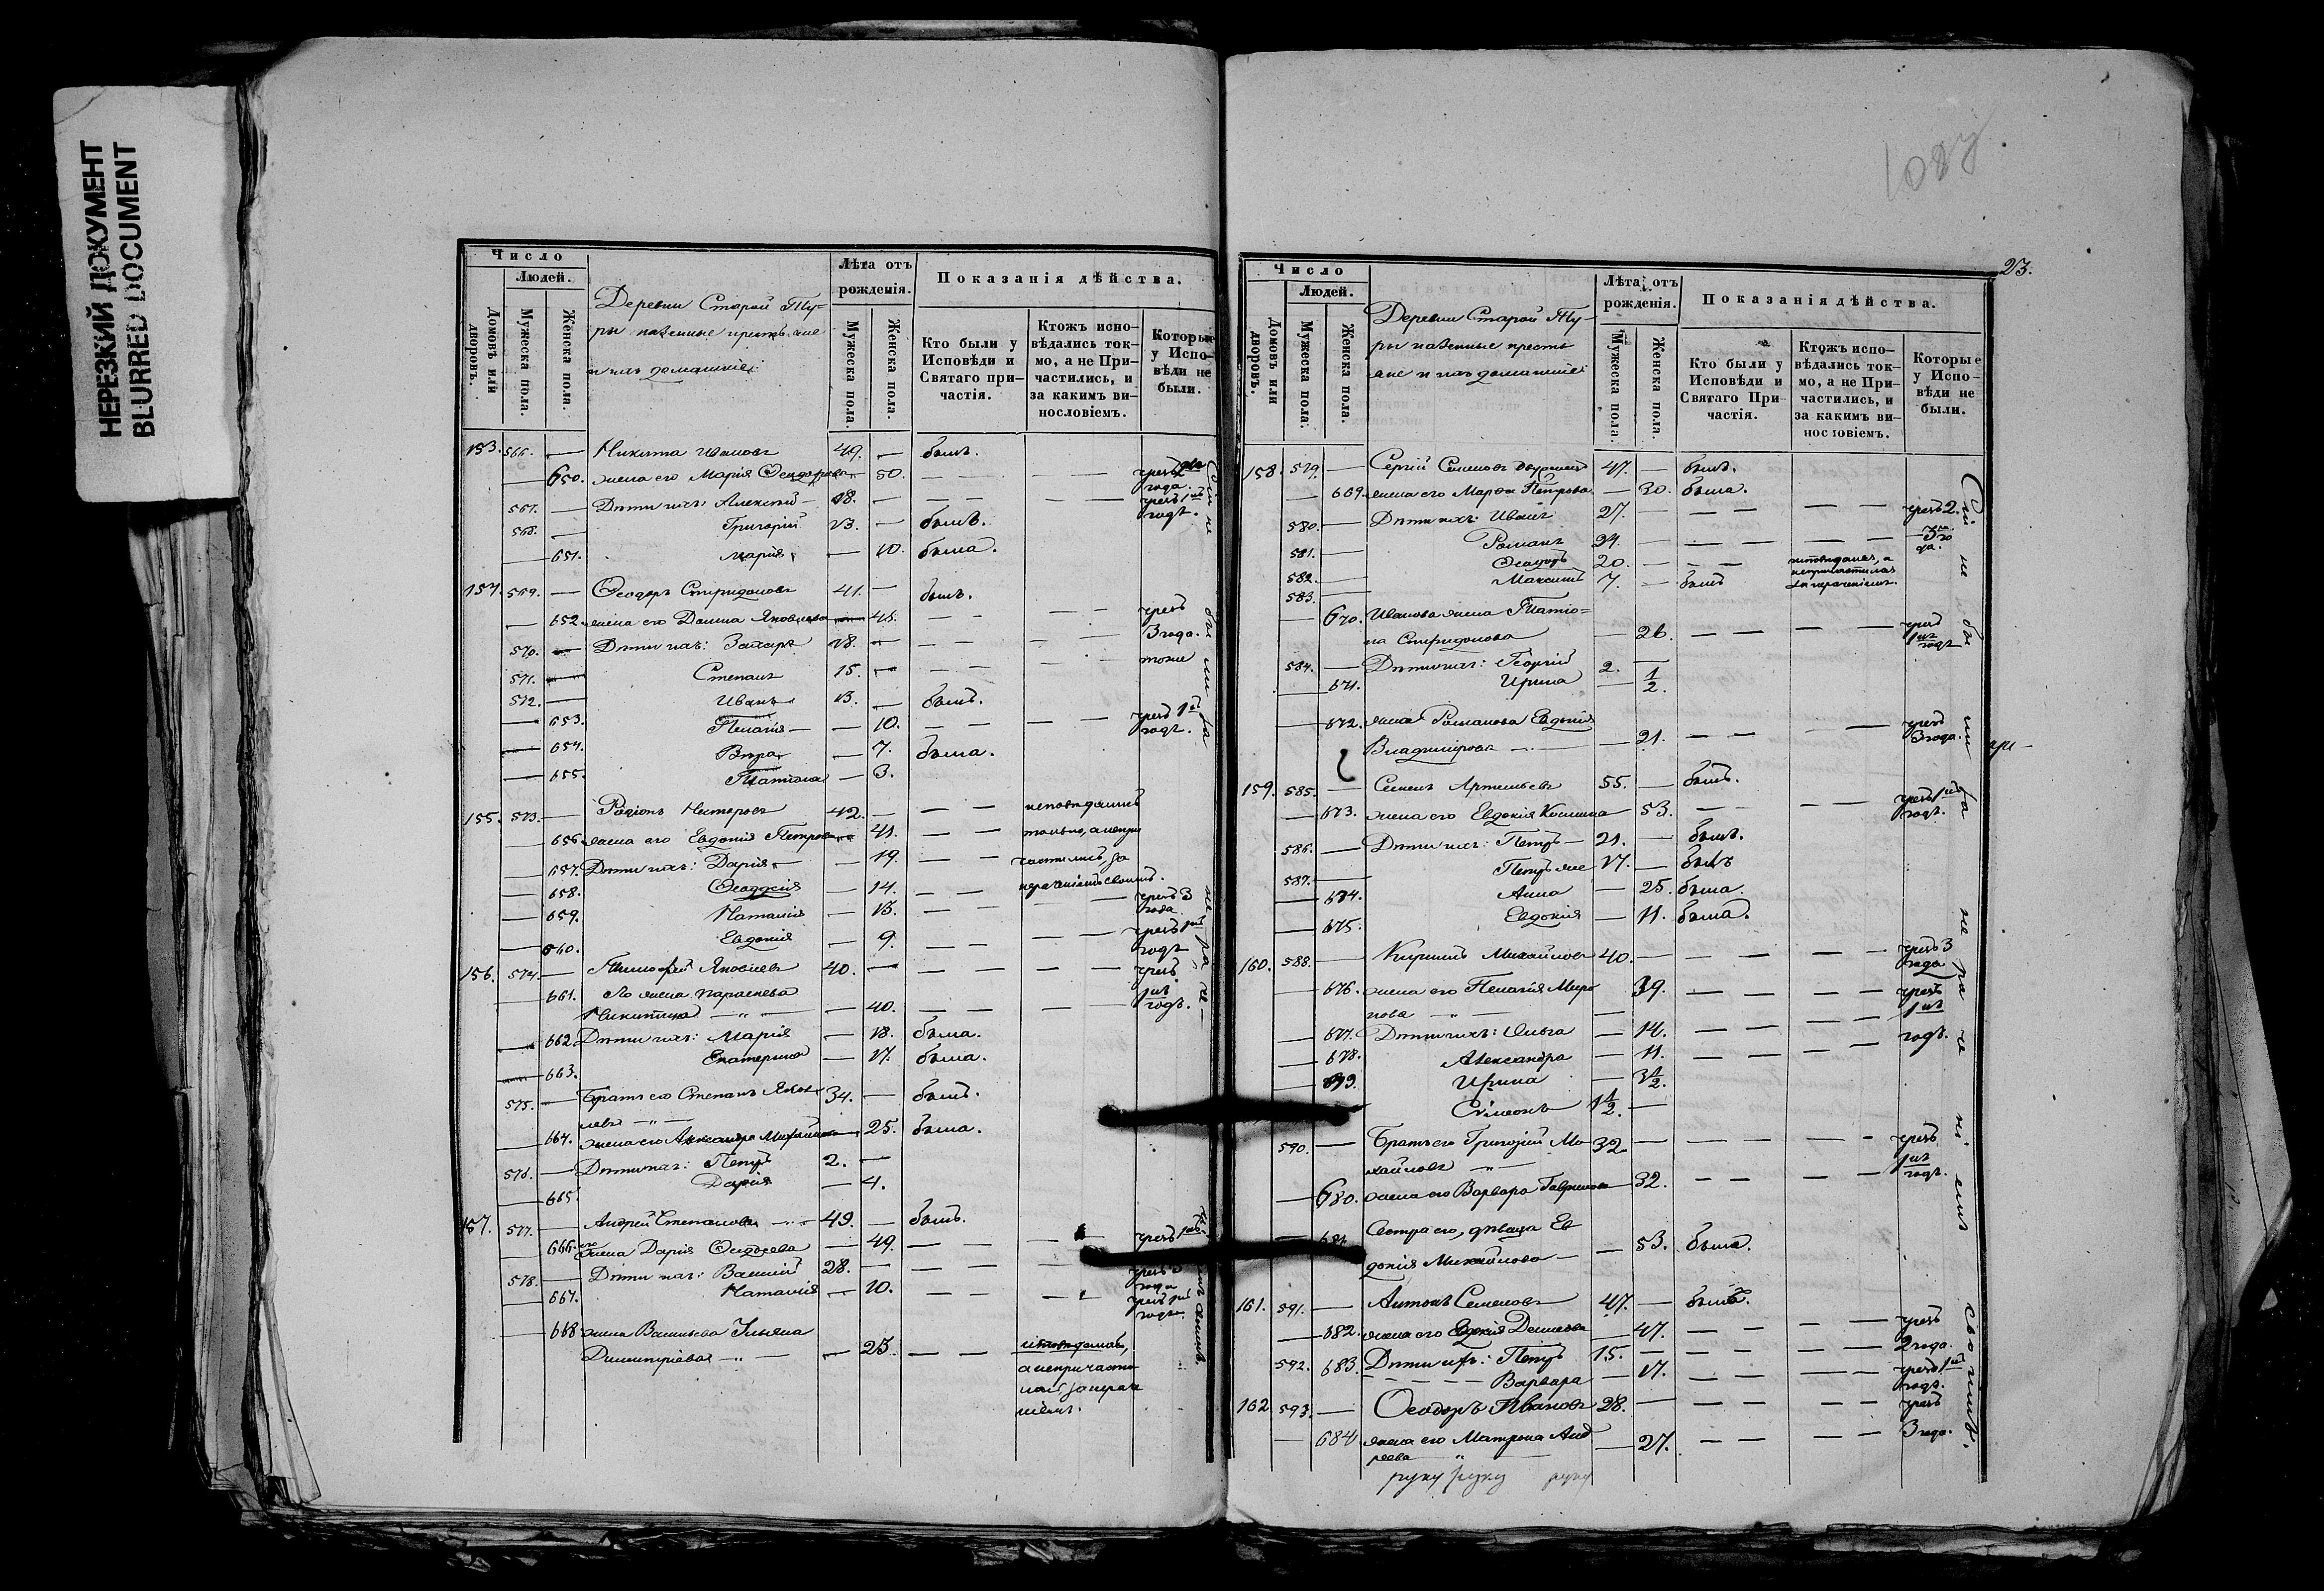 НЕРЕЗКИЙ ДОКУМЕНТ
BLURRED DOCUMENT
Число
Людей.
Домовъ или дворовъ.
Мужеска пола.
Женска пола.
Деревни Старой Ту-
ры казенные крестьяне
и ихъ домашніе:
Лѣта отъ
рожденія.
Мужеска пола.
Женска пола.
Показанія дѣйства.
Кто были у
Исповѣди и
Святаго при-
частія.
Ктожъ испо-
вѣдались ток-
мо, а не При-
частились, и
за какимъ ви-
нословіемъ.
Которые
у Испо-
вѣди не
были.
153. 566. — Никита Ивановъ 49. — былъ.
— 650. жена его Марія Ѳеодорова — 50. — — — — чрезъ два года.
567. — Дѣти ихъ: Алексѣй — 18. — — — — — чрезъ 1нъ годъ.
568. — Григорій 13. — былъ.
— 651. Марія — 10. была.
154. 569. — Ѳеодоръ Спиридоновъ 41. — былъ.
— 652. жена его Домна Яковлева — 41. — — — — чрезъ
570. — Дѣти ихъ: Захаръ 18. — — — — 3 года.
571. — Степанъ 15. — — — — тоже
572. — Иванъ 13. — былъ.
— 653. Пелагія — — 10. — — — — чрезъ 1нъ годъ.
— 654. Вѣра — 7. была.
— 655. Татіана — 3.
155. 573. — Родіонъ Нестеровъ 42. — — — исповѣдались
— 656. жена его Евдокія Петрова — 41. — — только, а непри
— 657. Дѣти ихъ: Дарія — — 19. — — частились, за
— 658. Ѳеодосія — 14. — — нераченіемъ своимъ.
— 659. Наталія — 13. — — — — чрезъ 3 года.
— 660. Евдокія — 9. — — — — чрезъ 1нъ годъ
156. 574. — Тимофей Яковлевъ 40. — — — — — чрезъ
— 661. его жена Параскева
Никитина — „ — 40. — — — — 1нъ годъ.
— 662. Дѣти ихъ: Марія — 18. была.
— 663. Екатерина — 17. была.
575. — Братъ его Степанъ Яков
левъ — „ — 34. — былъ.
— 664. жена его Александра Михайлова — 25. была.
576. — Дѣти ихъ: Петръ 2. —
— 665. Дарія — 4.
157. 577. — Андрей Степановъ — „ — 49. — былъ.
— 666. его жена Дарія — 49. — — — чрезъ 1нъ
578. — Дѣти ихъ: Василій 28. — — — — чрезъ 3 года
— 667. Наталія — 10. — — — чрезъ 1нъ годъ.
— 668. жена Васильева Ульяна
Димитріева — „ — — 23. — — исповѣдалась,
а непричасти
лась за нера
ченіемъ.
23.
Число
Людей.
Домовъ или дворовъ.
Мужеска пола.
Женска пола.
Деревни Старой Ту-
ры казенные кресть
яне и ихъ домашніе
Лѣта отъ
рожденія.
Мужеска пола.
Женска пола.
Показанія дѣйства.
Кто были у
Исповѣди и
Святаго При-
частія.
Ктожъ испо-
вѣдались ток-
мо, а не При-
частились, и
за какимъ ви-
нословіемъ.
Которые
у Испо-
вѣди не
были.
158. 579. — Сергій Семеновъ 47. — былъ.
— 669. жена его Марѳа Петрова — 30. была.
580. — Дѣти ихъ: Иванъ 27. — — — — — чрезъ 2.
581. — Романъ 24. — — — — — 3 го
да.
582. — Ѳеодоръ 20. — — — исповѣдался, а
непричастился
за нераченіемъ.
583. — Максимъ 7. — былъ
— 670. Иванова жена Татіа-
на Спиридонова — 26. — — — — чрезъ 1нъ годъ
584. — Дѣти ихъ: Георгій 2. —
— 671. Ирина — 1/2.
— 672. жена Романова Евдокія
Владимірова — „ — — 21. — — — — чрезъ 3 года.
159. 585. — Семенъ Артемьевъ 55. — былъ.
— 673. жена его Евдокія Космина — 53. — — — — чрезъ 1нъ годъ.
586. — Дѣти ихъ: Петръ — 21. — былъ.
587. — Петръ же 17. — былъ
— 674. Анна — 25. была.
— 675. Евдокія — 11. была.
160. 588. — Кириллъ Михайловъ 40. — — — — — чрезъ 3 года
— 676. жена его Пелагія Миро
нова — „ — 39. — — — — чрезъ
— 677. Дѣти ихъ: Ольга — 14. — — — — 1нъ
— 678. Александра — 11. — — — — годъ.
— 679. Ирина — 3 1/2.
Симеонъ 1 1/2. —
590. — Братъ его Григорій Ми
хайловъ — „ — 32 — — — — — чрезъ
— 680. жена его Варвара Гаврилова — 32. — — — — 1нъ годъ.
— 681. Сестра его, дѣвица Ев
докія Михайлова — — 53. была.
161. 591. — Антонъ Семеновъ 47. — былъ.
— 682. жена его Евдокія Денисова — 47. — — — — чрезъ
592. 683. Дѣти ихъ: Петръ 15. — — — — — 2 года.
Варвара — 17. — — — — чрезъ 1нъ годъ.
162 593. — Ѳеодоръ Ивановъ 28. — — — — — чрезъ
— 684. жена его Матрона Анд
реева „ — 27. — — — — 3 года.
руку руку руку